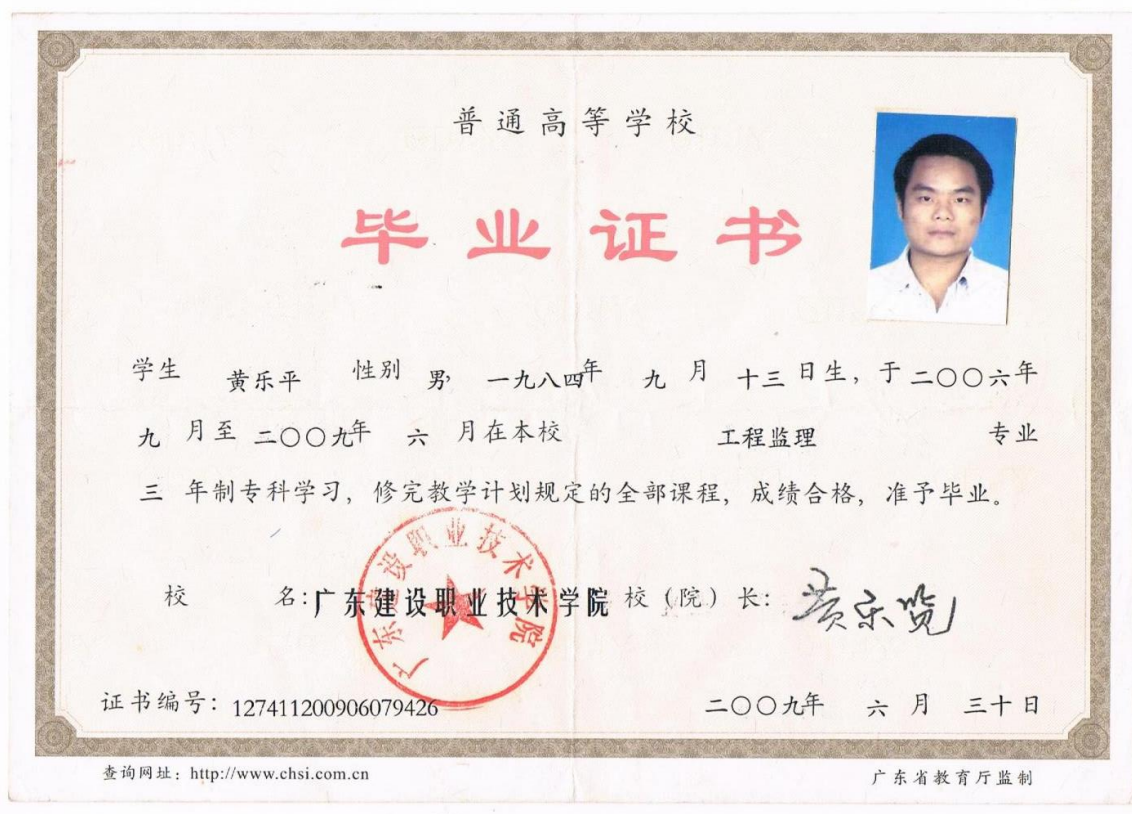 普通高等学校
毕业证书
学生 黄乐平 性别 男, 一九八四年 九 月 十三 日生, 于 二〇〇六年
九 月至 二〇〇九年 六 月在本校 工程监理 专业
三 年制专科学习, 修完教学计划规定的全部课程, 成绩合格, 准予毕业。
广东建设职业技术学院
校 名: 广东建设职业技术学院 校（院）长:
证书编号: 127411200906079426 二〇〇九年 六 月 三十 日
查询网址: http://www.chsi.com.cn 广东省教育厅监制